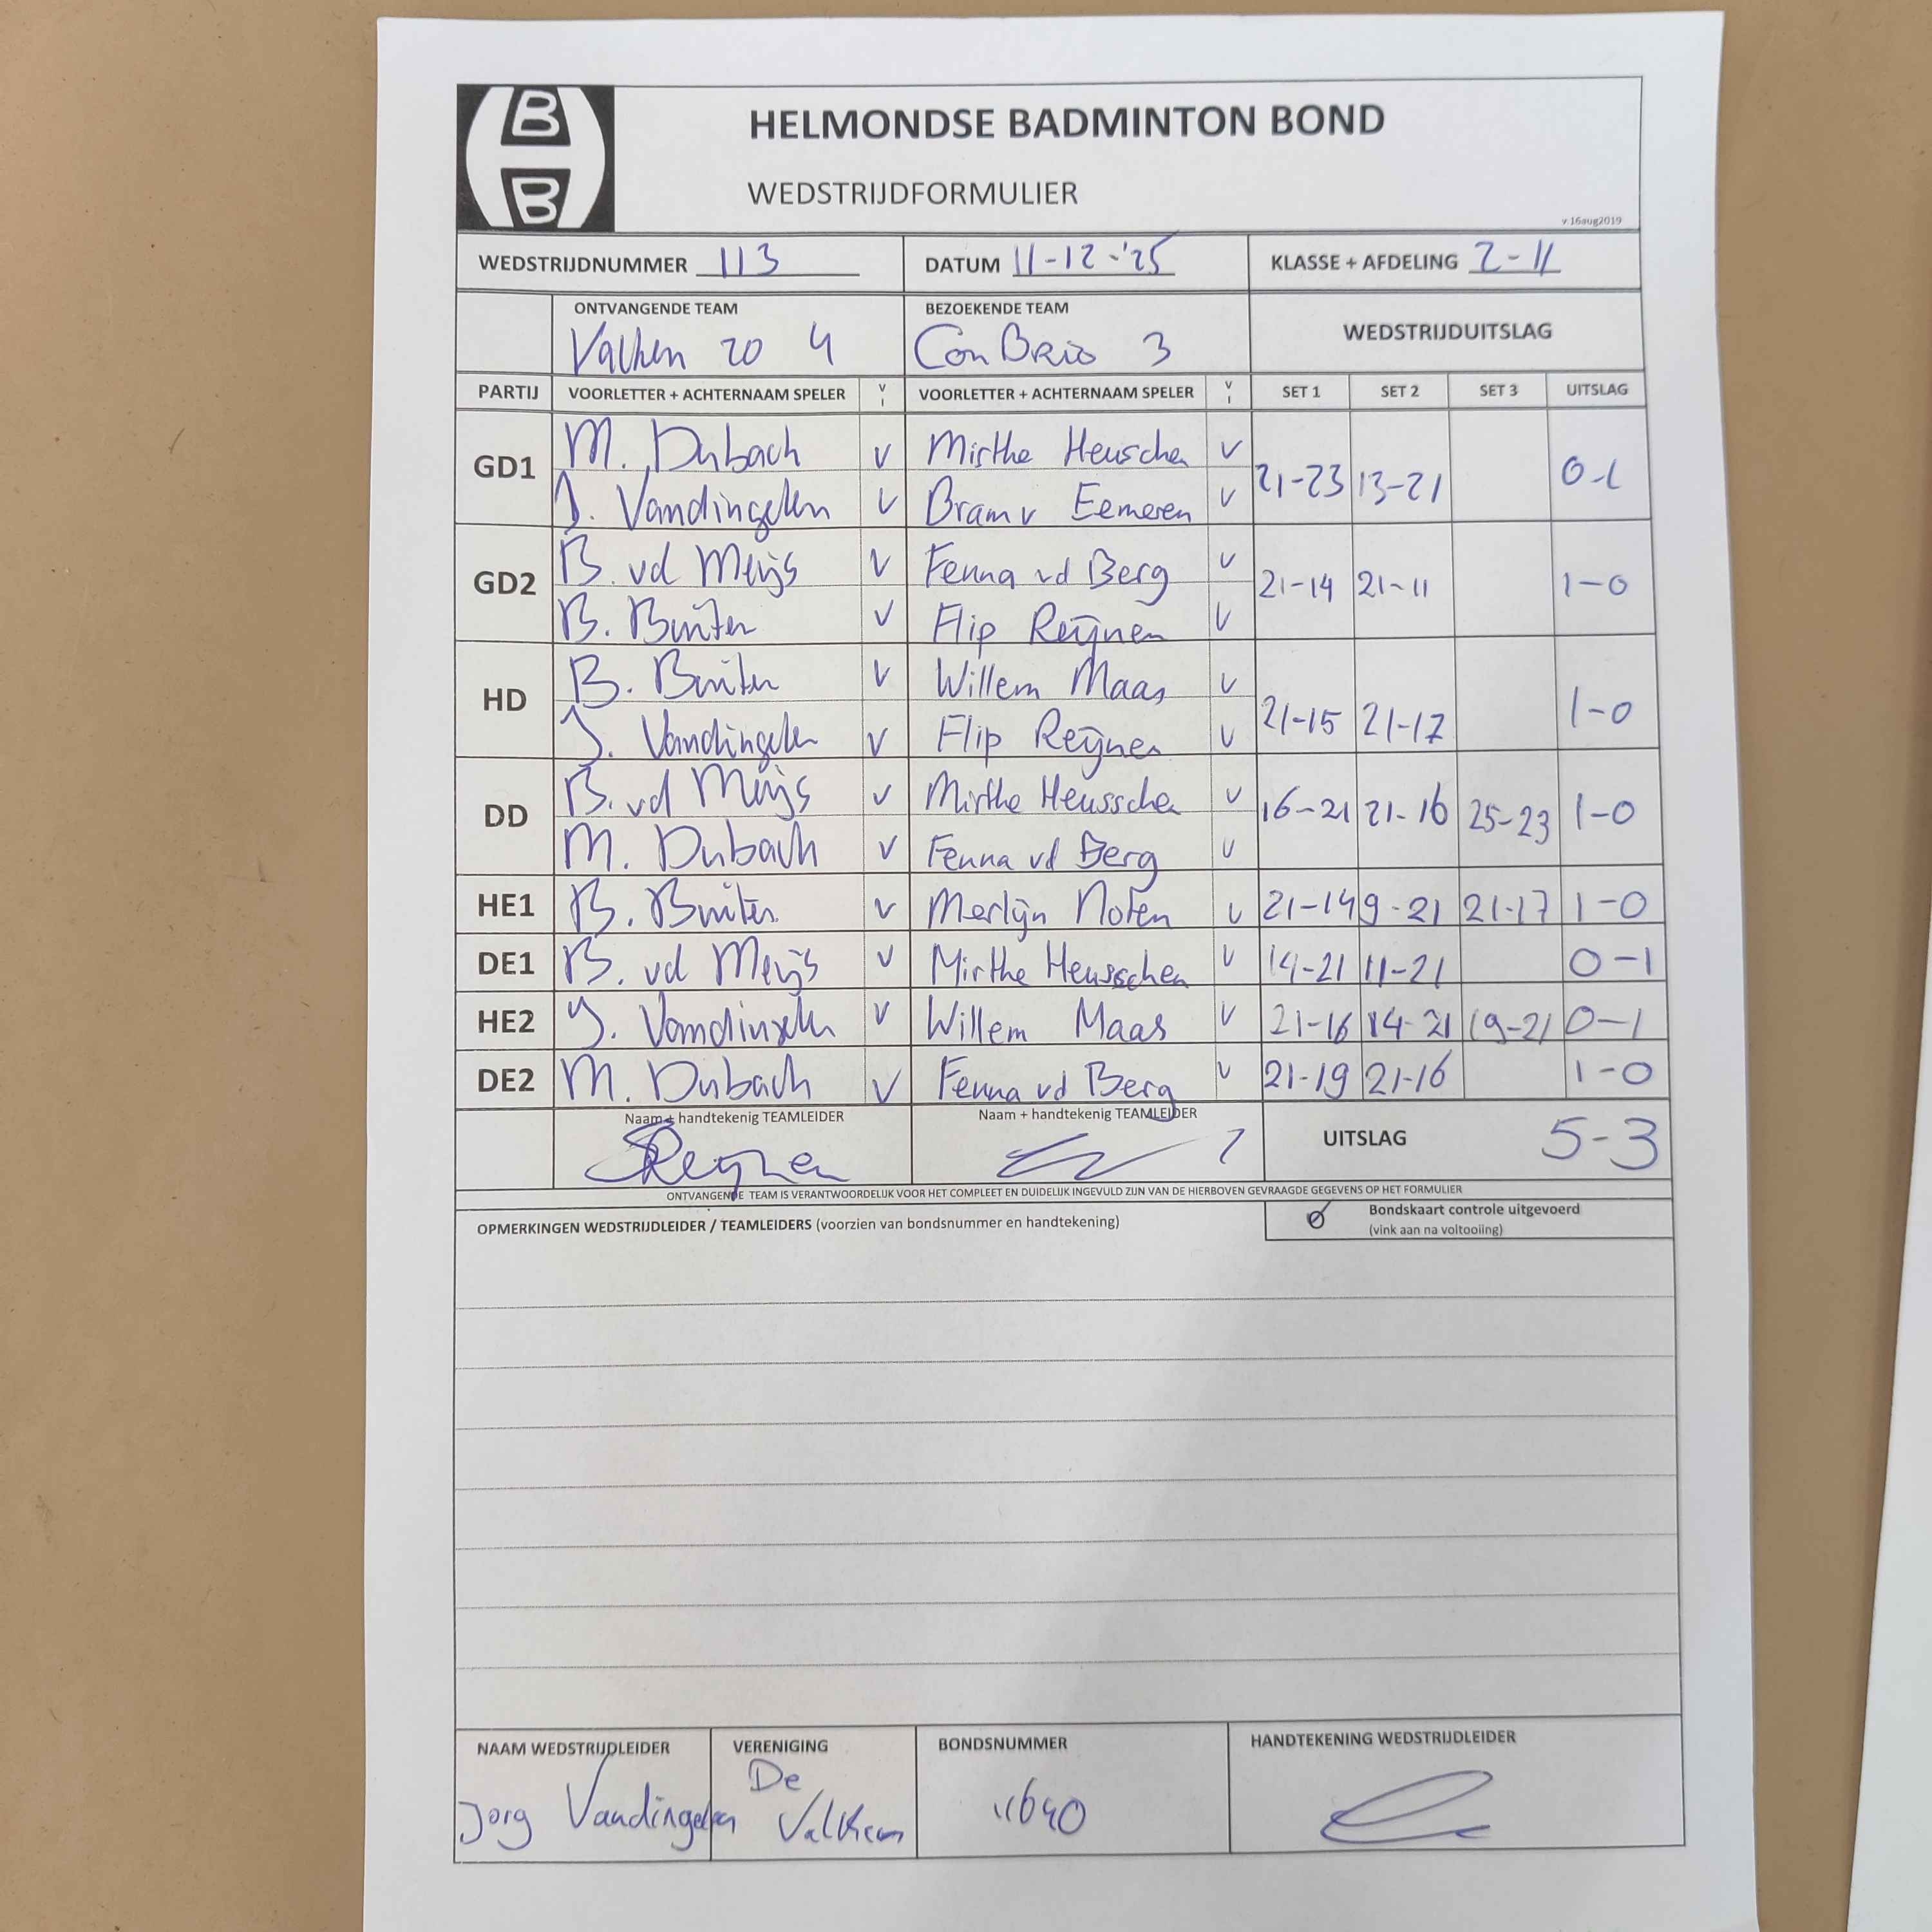 B
B
HELMONDSE BADMINTON BOND
WEDSTRIJDFORMULIER
v 16aug2019
WEDSTRIJDNUMMER 113 DATUM 11-12-'25 KLASSE + AFDELING 2-11
ONTVANGENDE TEAM BEZOEKENDE TEAM WEDSTRIJDUITSLAG
Valken 20 4 Con Brio 3
PARTIJ VOORLETTER + ACHTERNAAM SPELER V I VOORLETTER + ACHTERNAAM SPELER V I SET 1 SET 2 SET 3 UITSLAG
GD1 M. Dubach V Mirthe Heuschen V 21-23 13-21 0-1
J. Vandingelen V Bram v Eemeren V
GD2 B. vd Meijs V Fenna vd Berg V 21-14 21-11 1-0
B. Buiter V Flip Reijnen V
HD B. Buiter V Willem Maas V 21-15 21-17 1-0
J. Vandingelen V Flip Reijnen V
DD B. vd Meijs V Mirthe Heusschen V 16-21 21-16 25-23 1-0
M. Dubach V Fenna vd Berg V
HE1 B. Buiter V Merlijn Noten V 21-14 9-21 21-17 1-0
DE1 B. vd Meijs V Mirthe Heusschen V 14-21 11-21 0-1
HE2 J. Vandingelen V Willem Maas V 21-16 14-21 19-21 0-1
DE2 M. Dubach V Fenna vd Berg V 21-19 21-16 1-0
Naam + handtekenig TEAMLEIDER Naam + handtekenig TEAMLEIDER UITSLAG 5-3
Reijnen
ONTVANGENDE TEAM IS VERANTWOORDELIJK VOOR HET COMPLEET EN DUIDELIJK INGEVULD ZIJN VAN DE HIERBOVEN GEVRAAGDE GEGEVENS OP HET FORMULIER
OPMERKINGEN WEDSTRIJDLEIDER / TEAMLEIDERS (voorzien van bondsnummer en handtekening) Bondskaart controle uitgevoerd
(vink aan na voltooiing)
NAAM WEDSTRIJDLEIDER VERENIGING BONDSNUMMER HANDTEKENING WEDSTRIJDLEIDER
Jorg Vandingelen De Valken 11640